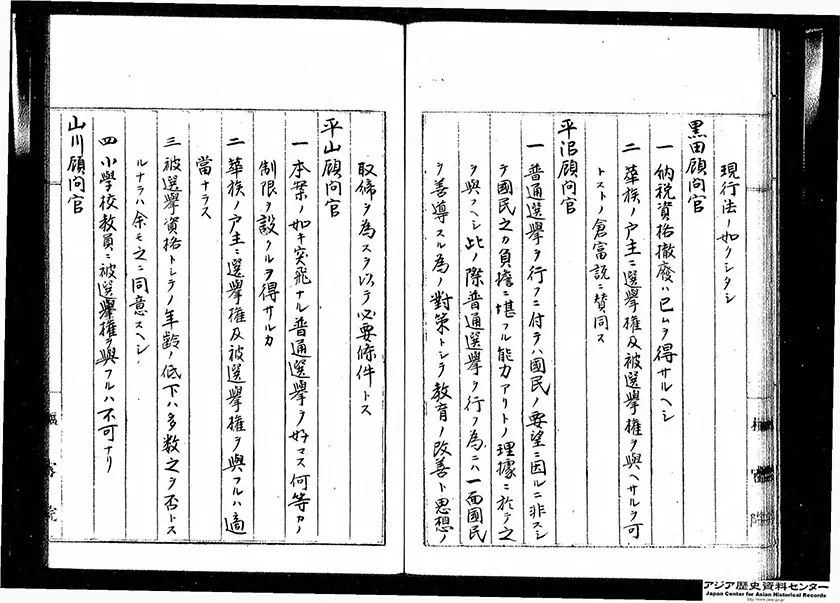 現行法ノ如クシタシ
黒田顧問官
一 納税資格撤廃ハ已ムヲ得サルヘシ
二 華族ノ戸主ニ選挙權及被選挙權ヲ與ヘサルヲ可
トストノ倉富説ニ賛同ス
平沼顧問官
一 普通選挙ヲ行フニ付テハ國民ノ要望ニ因ルニ非スシ
テ國民之カ負擔ニ堪フル能力アリトノ理據ニ於テ之
ヲ與フヘシ此ノ際普通選挙ヲ行フ為ニハ一面國民
ヲ善導スル為ノ對策トシテ教育ノ改善ト思想ノ
取締ヲ為スヲ以テ必要條件トス
平山顧問官
一 本案ノ如キ突飛ナル普通選挙ヲ好マス何等カノ
制限ヲ設クルヲ得サルカ
二 華族ノ戸主ニ選挙權及被選挙權ヲ與フルハ適
當ナラス
三 被選挙資格トシテノ年齢ノ低下ハ多数之ヲ否トス
ルナラハ余モ之ニ同意スヘシ
四 小學校教員ニ被選挙權ヲ與フルハ不可ナリ
山川顧問官
樞密院
アジア歴史資料センター
Japan Center for Asian Historical Records
http://www.jacar.go.jp/